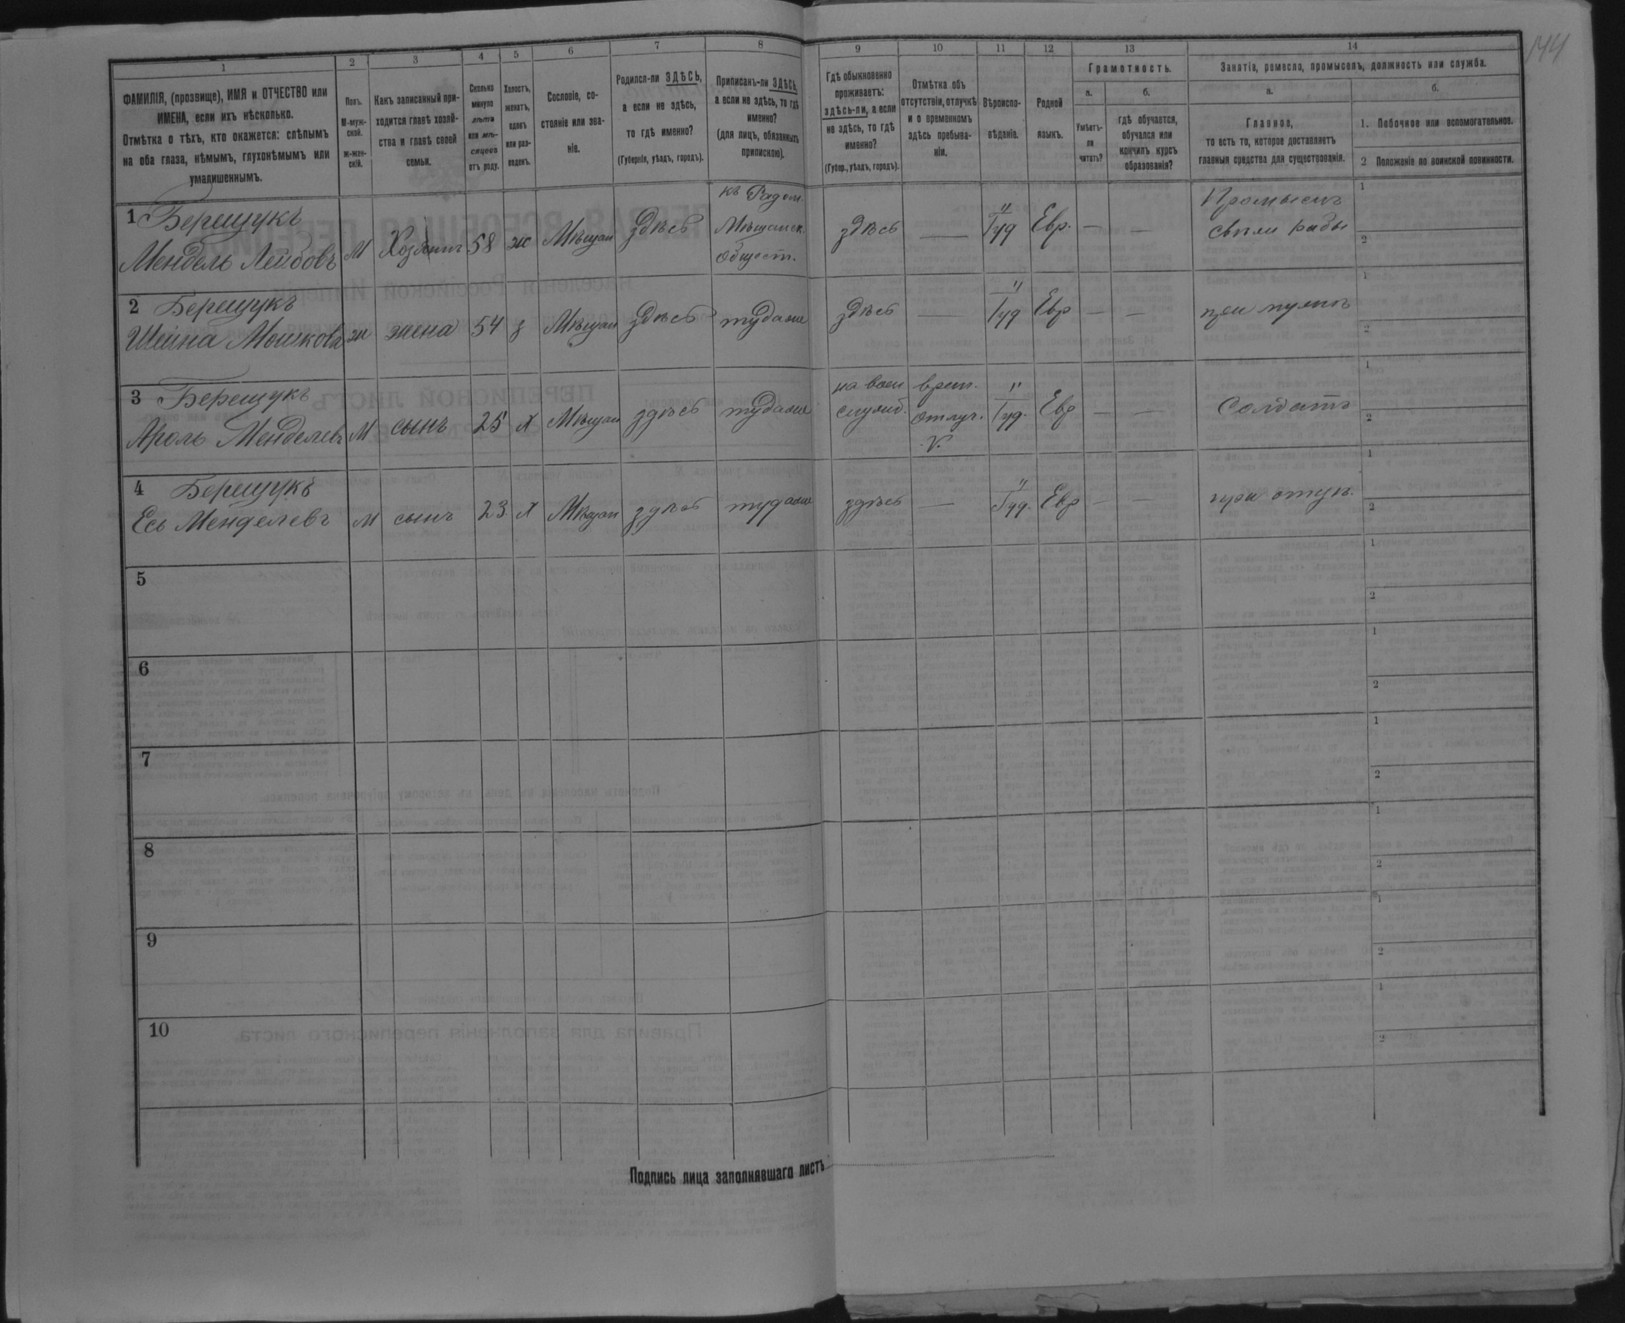 144
1 2 3 4 5 6 7 8 9 10 11 12 13 14
ФАМИЛІЯ, (прозвище), ИМЯ и ОТЧЕСТВО или
ИМЕНА, если ихъ нѣсколько.
Отмѣтка о тѣхъ, кто окажется: слѣпымъ
на оба глаза, нѣмымъ, глухонѣмымъ или
умалишеннымъ.
Полъ.
М-муж-
ской.
ж-жен-
скій.
Какъ записанный при-
ходится главѣ хозяй-
ства и главѣ своей
семьи.
Сколько
минуло
лѣтъ
или мѣ-
сяцевъ
отъ роду.
Холостъ,
женатъ,
вдовъ
или раз-
веденъ.
Сословіе, со-
стояніе или зва-
ніе.
Родился-ли ЗДѢСЬ,
а если не здѣсь,
то гдѣ именно?
(Губернія, уѣздъ, городъ).
Приписанъ-ли ЗДѢСЬ,
а если не здѣсь, то гдѣ
именно?
(для лицъ, обязанныхъ
припискою).
Гдѣ обыкновенно
проживаетъ:
здѣсь-ли, а если
не здѣсь, то гдѣ
именно?
(Губер., уѣздъ, городъ).
Отмѣтка объ
отсутствіи, отлучкѣ
и о временномъ
здѣсь пребыва-
ніи.
Вѣроиспо-
вѣданіе.
Родной
языкъ.
Грамотность.
а.
Умѣетъ-
ли
читать?
б.
гдѣ обучается,
обучался или
кончилъ курсъ
образованія?
Занятіе, ремесло, промыселъ, должность или служба.
а.
Главное,
то есть то, которое доставляетъ
главныя средства для существованія.
б.
1. Побочное или вспомогательное.
2 Положеніе по воинской повинности.
1 Берещукъ
Мендель Лейбовъ М Хозяинъ 58 ж Мѣщан здѣсь
къ Радом.
Мѣщанск.
Обществ.
здѣсь — Іуд Евр. — —
1
2
2 Берещукъ
Шейна Мошкова ж жена 54 з Мѣщан здѣсь тудаже здѣсь — Іуд Евр — — при мужѣ
1
2
3 Берещукъ
Ароль Менделевъ М сынъ 25 х Мѣщан здѣсь тудаже
на воен
служб.
врем.
отлуч.
Іуд. Евр — — Солдатъ
1
2
4 Берещукъ
Есь Менделевъ М сынъ 23 х Мѣщан здѣсь тудаже здѣсь — Іуд. Евр — — при отцѣ.
1
2
5
1
2
6
1
2
7
1
2
8
1
2
9
1
2
10
1
2
Подпись лица заполнявшаго листъ